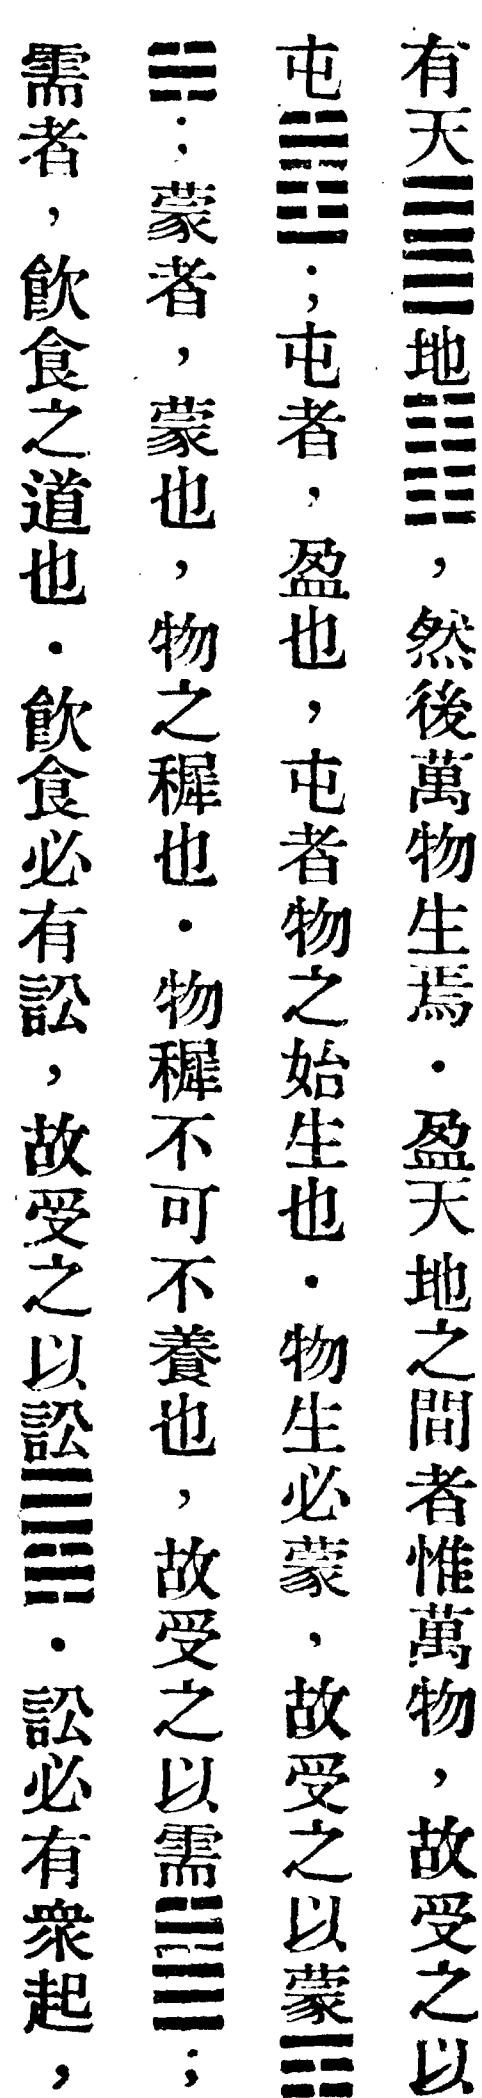 有天䷀地䷁，然後萬物生焉．盈天地之間者惟萬物，故受之以
屯䷂；屯者，盈也，屯者物之始生也．物生必蒙，故受之以蒙☶
☵；蒙者，蒙也，物之穉也．物穉不可不養也，故受之以需䷄；
需者，飲食之道也．飲食必有訟，故受之以訟䷅．訟必有衆起，